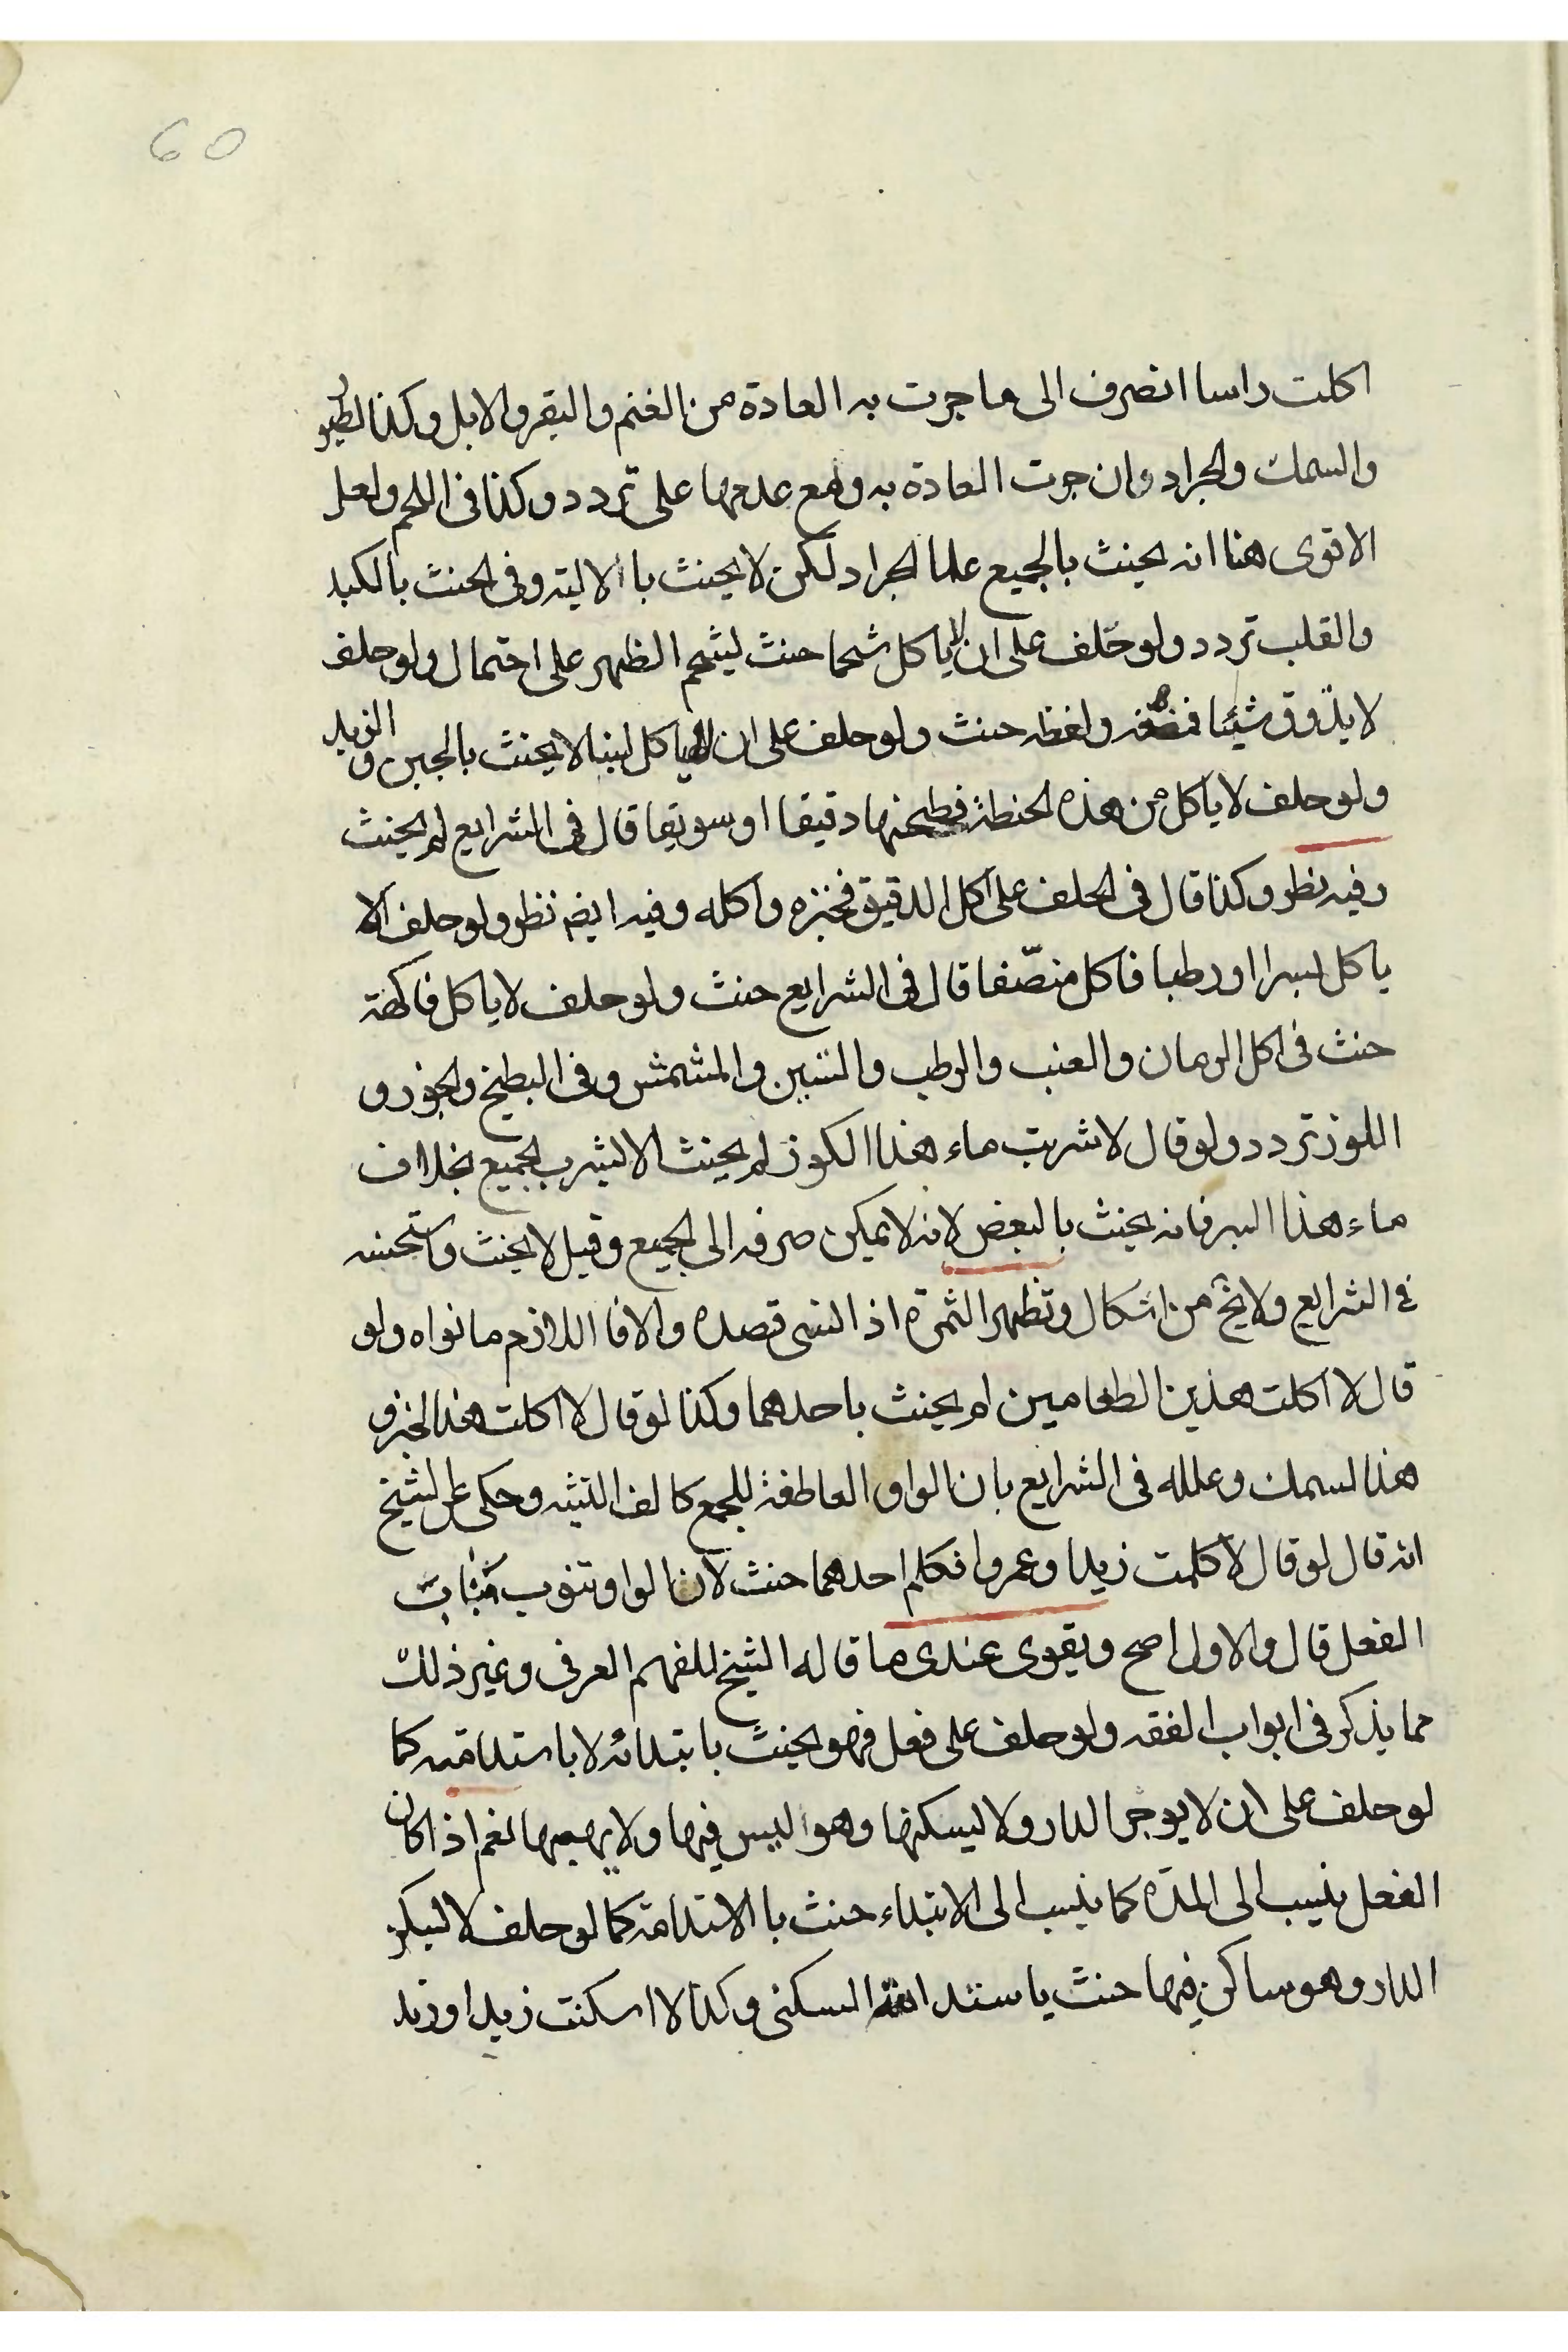 60
اكلت راسا انصرف الى ما جرت به العادة من الغنم والبقر والابل وكذا الطيور
والسمك والجراد وان جرت العادة به ومع عدمها على تردد وكذا فى اللحم ولعل
الاقوى هنا انه يحنث بالجميع عدا الجراد لكن لا يحنث با الالية وفى الحنث بالكبد
والقلب تردد ولو حلف على ان لا ياكل شحما حنث بشحم الظهر على احتمال ولو حلف
لا يذوق شيئا فمضغه ولفظه حنث ولو حلف على ان لا ياكل لبنا لا يحنث بالجبن و الزبد
ولو حلف لا ياكل من هذه الحنطة فطحنها دقيقا او سويقا قال فى الشرايع لم يحنث
وفيه نظر وكذا قال فى الحلف على اكل الدقيق فخبزه واكله وفيه ايضم نظر ولو حلف الا
ياكل بسرا او رطبا فاكل منصّفا قال فى الشرايع حنث ولو حلف لا ياكل فاكهة
حنث فى اكل الرمان والعنب والرطب والتين والمشمش وفى البطيخ والجوز و
اللوز تردد ولو قال لا شربت ماء هذا الكوز لم يحنث الا بشرب الجميع بخلاف
ماء هذا البير فانه يحنث بالبعض لانه لا يمكن صرفه الى الجميع وقيل لا يحنث واستحسنه
فى الشرايع ولا يخ من اشكال وتظهر الثمرة اذا نسى قصده والا فا اللازم ما نواه ولو
قال لا اكلت هذين الطعامين لم يحنث باحدهما وكذا لو قال لا اكلت هذا الخبز و
هذا السمك وعلله فى الشرايع بان الواو العاطفة للجمع كالف التثنيه وحكى عن الشيخ
انه قال لو قال لا كلمت زيدا وعمروا فكلم احدهما حنث لان الواو تنوب مناب
الفعل قال والاول اصح ويقوى عندى ما قاله الشيخ للفهم العرفى وغير ذلك
مما يذكر فى ابواب الفقه ولو حلف على فعل فهو يحنث بابتدائه لا باستدامته كما
لو حلف على ان لا يوجر الدار ولا يسكنها وهو ليس فيها ولا يهبها نعم اذا كان
الفعل ينسب الى المدة كما ينسب الى الابتداء حنث با الاستدامة كما لو حلف لا ليسكن
الدار وهو ساكن فيها حنث باستدامة السكنى وكذا لا اسكنت زيدا وزيد